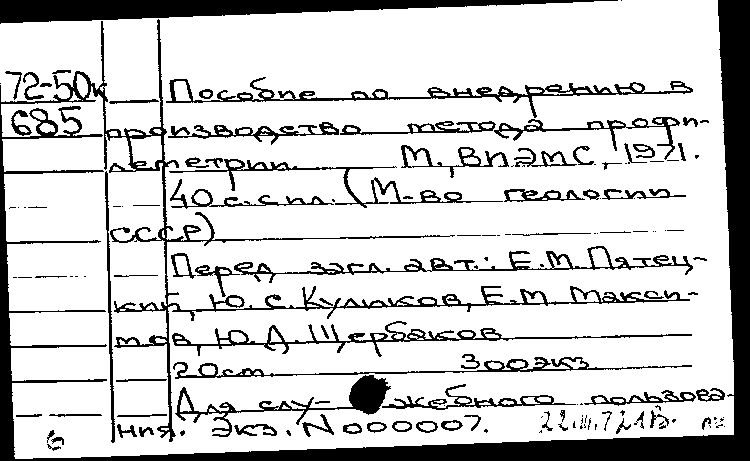 72-50к Пособие по внедрению в
685 производство метода профи-
леметрии. М., ВПЭМС, 1971.
40 с. с ил. (М-во геологии
СССР).
Перед загл. авт.: Е.М. Пятец-
кий, Ю.С. Кулюков, Е.М. Макси-
мов, Ю.Д. Щербаков
20 cm. 300 экз
Для слу- жебного пользова-
ния. Экз. N 000007. 22.III.72
6